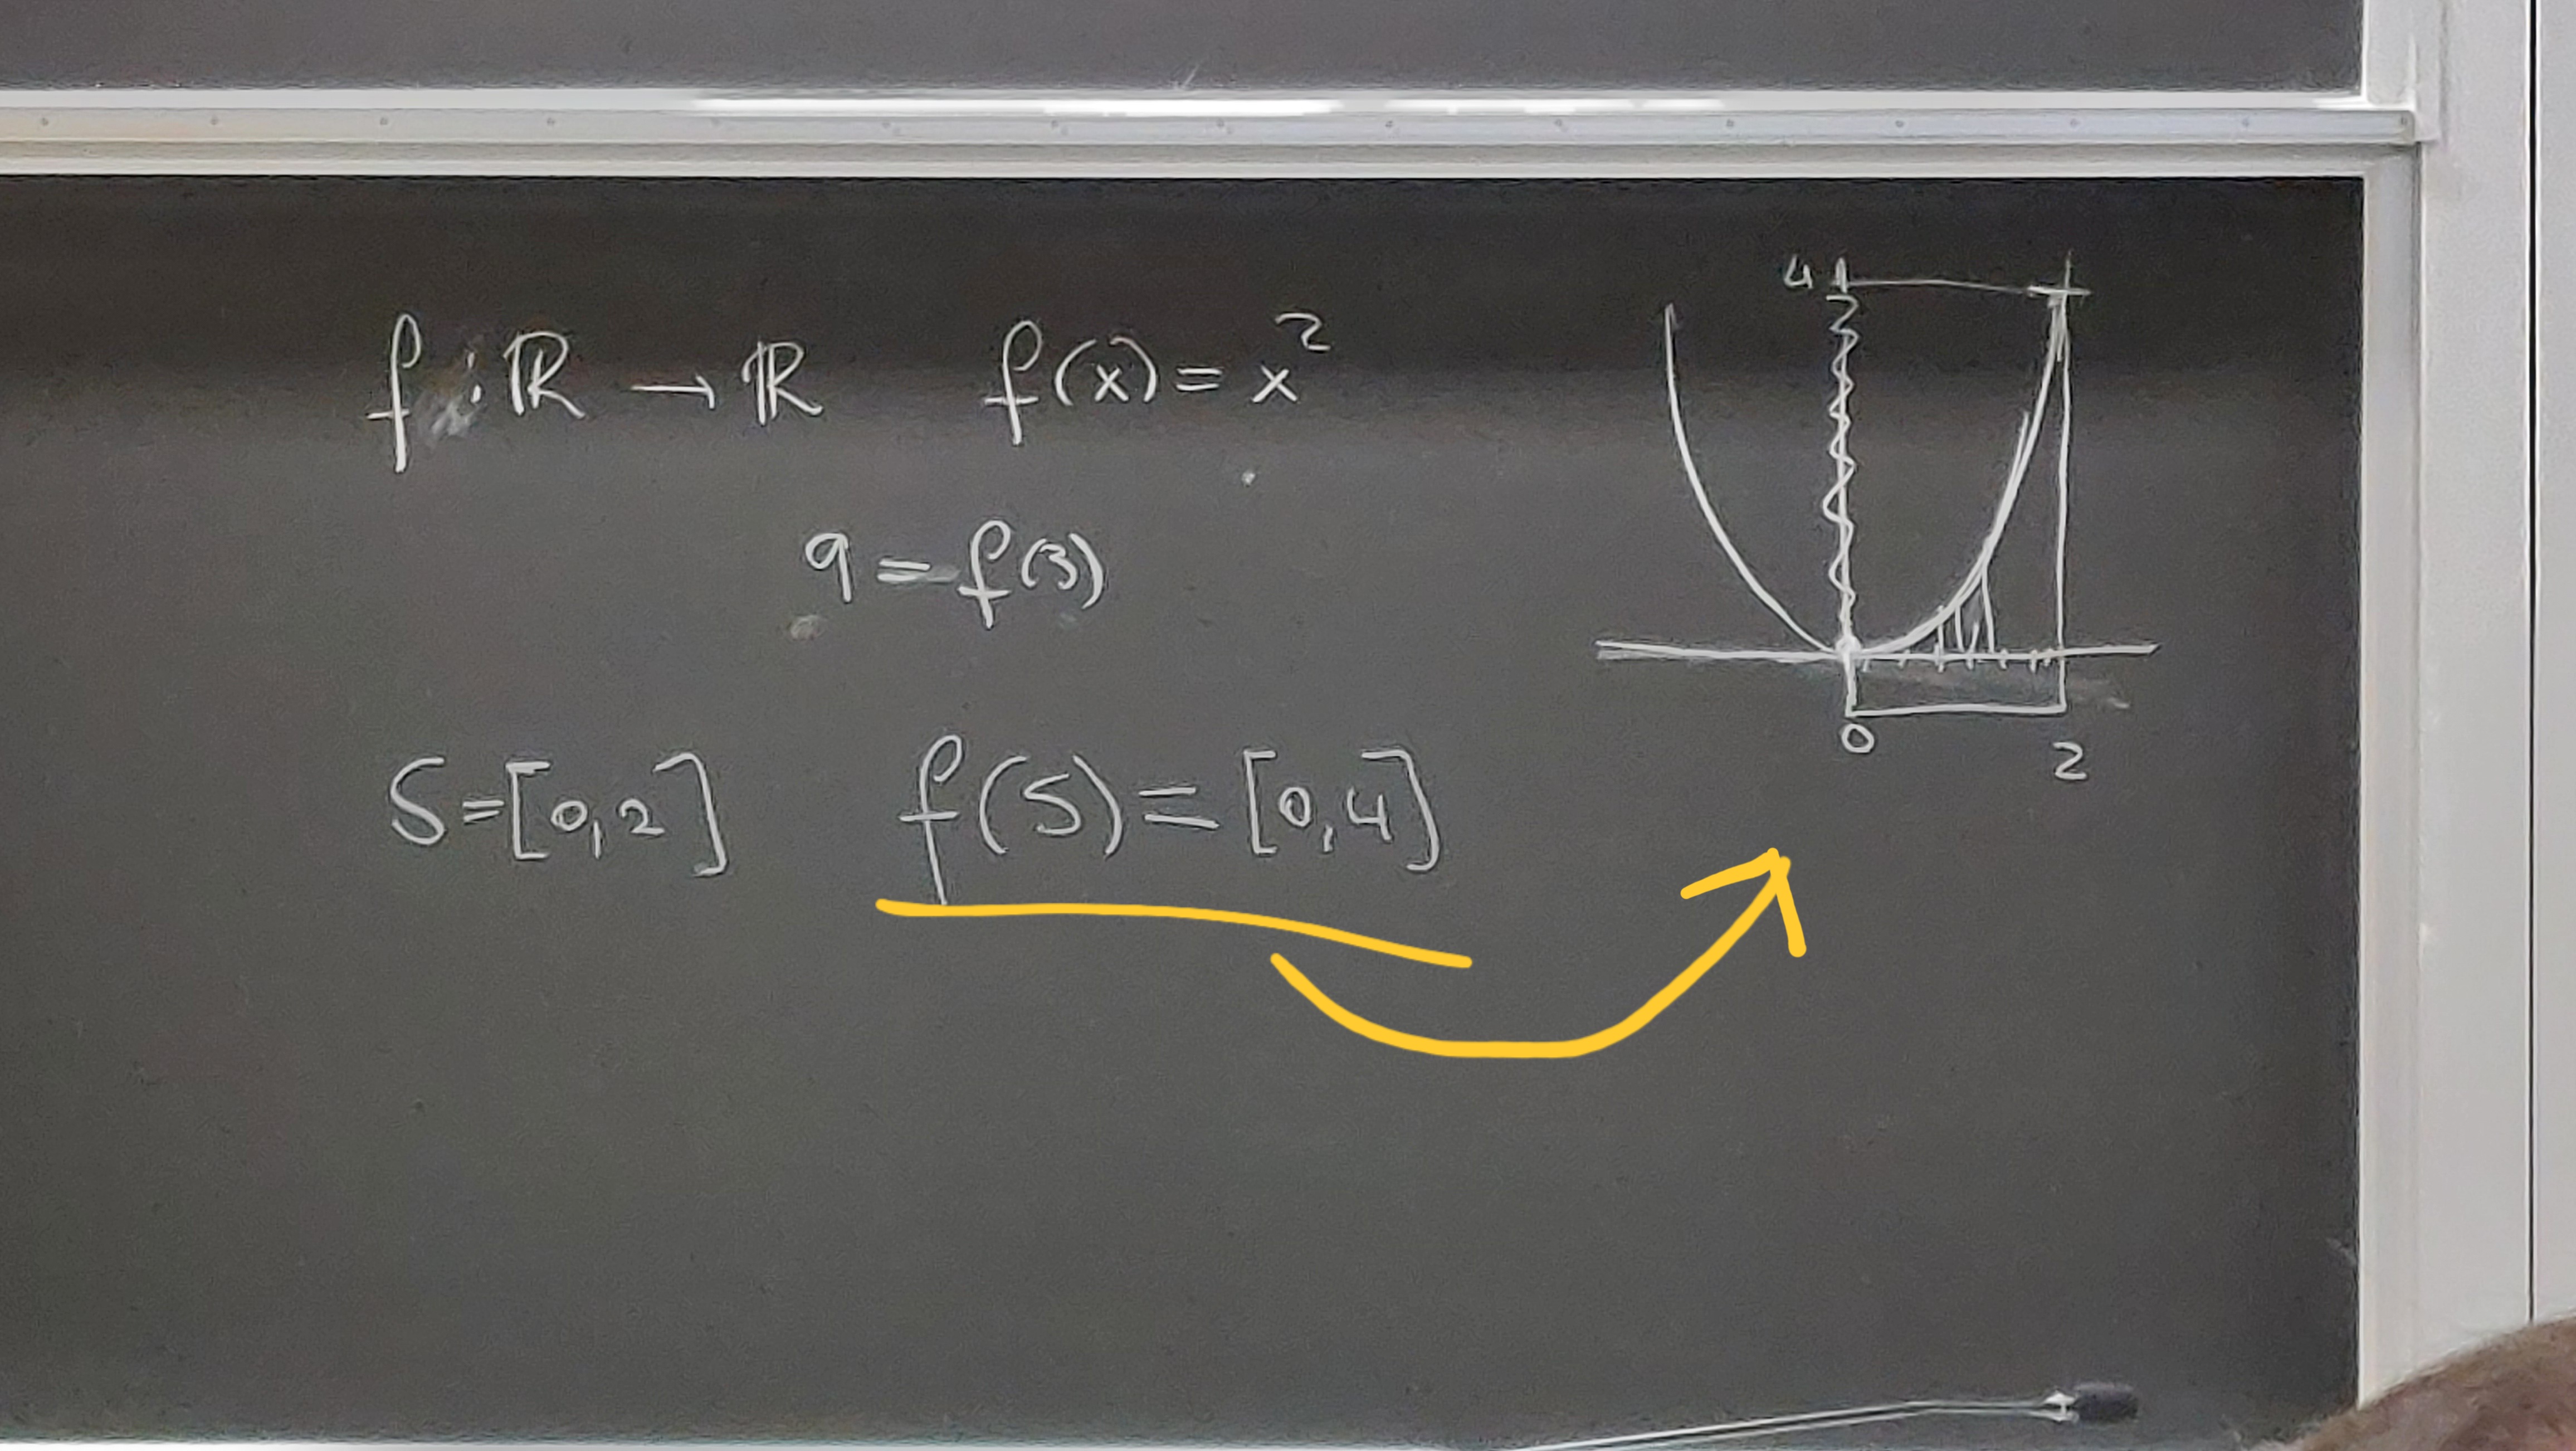 f : ℝ → ℝ f(x) = x²
9 = f(3)
S = [0,2] f(S) = [0,4]
4
0
2